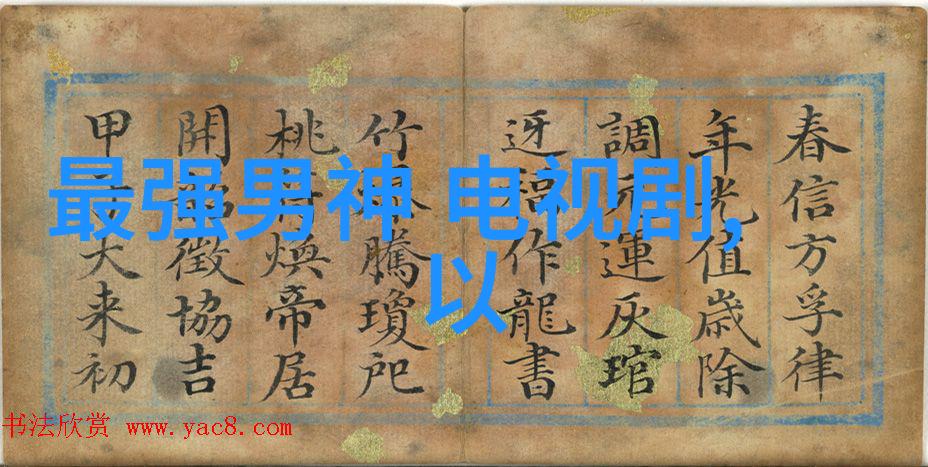 最强男神 电视剧,
以
春信方孚律
年光值歲除
調元運灰琯
迓福作龍書
竹騰瓊
桃符煥帝居
開韶徵協吉
甲大来初
书法欣赏 www.yac8.com